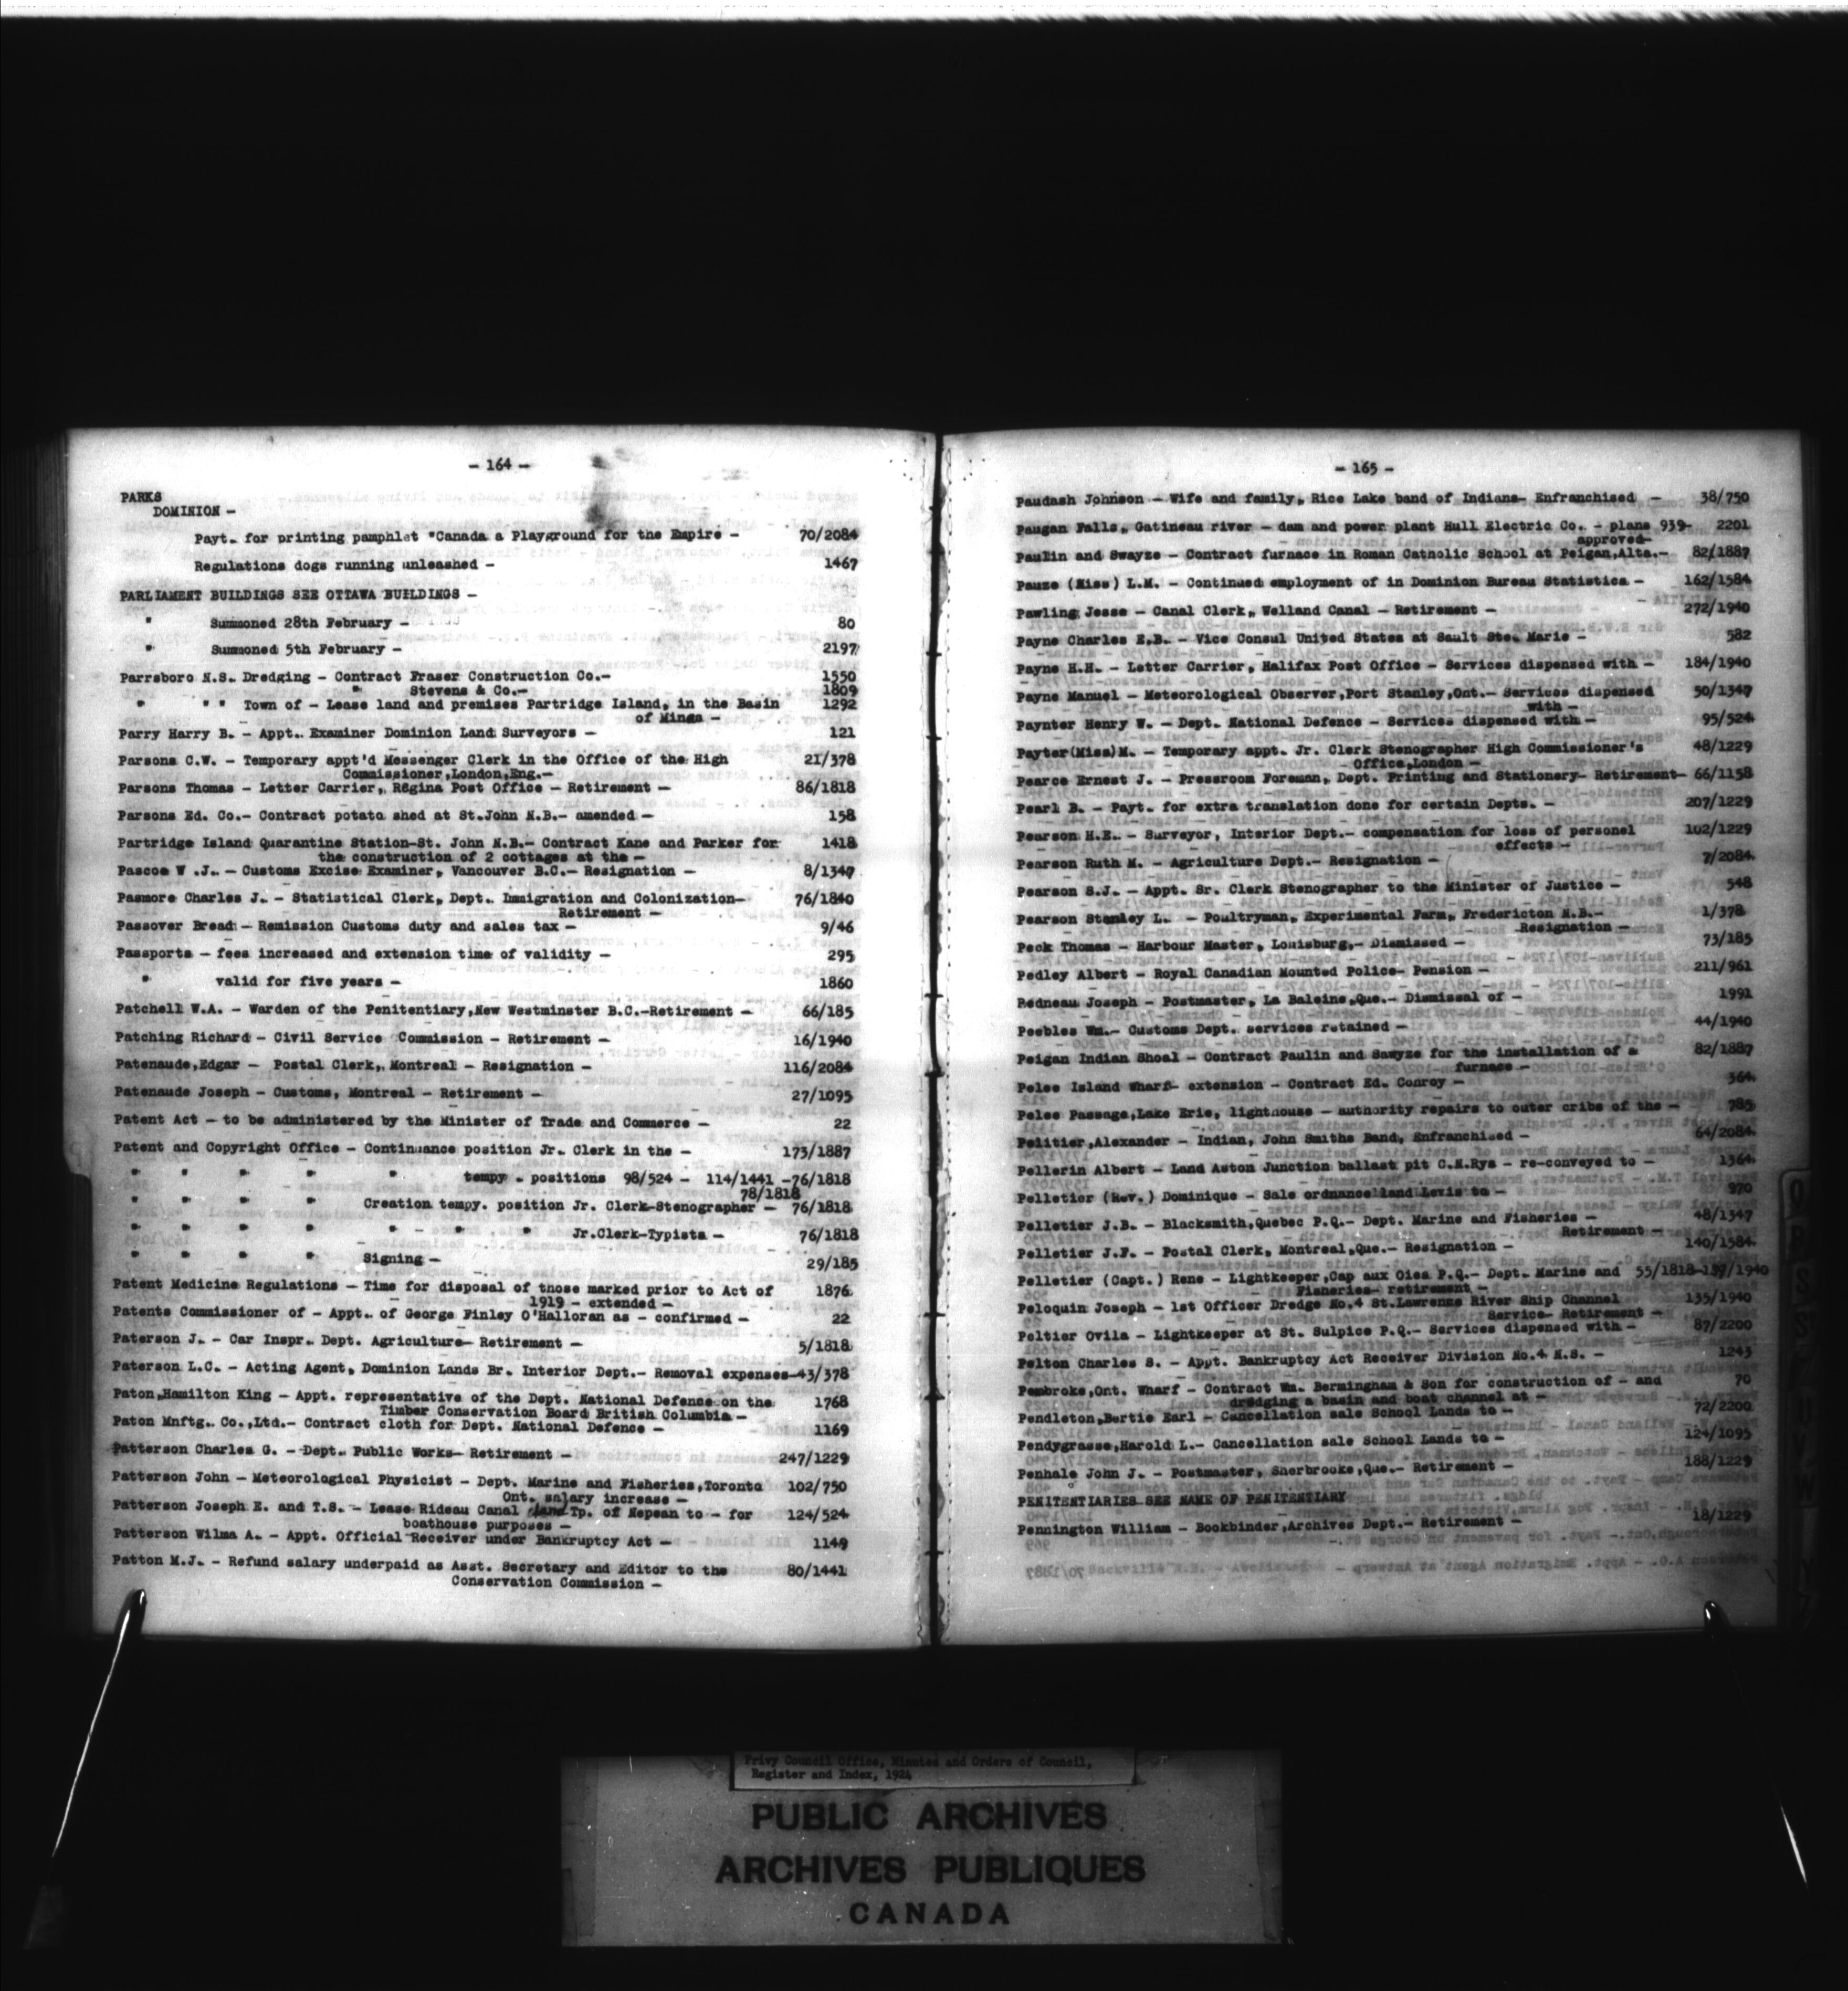 - 164 -
PARKS
DOMINION -
Payt. for printing pamphlet "Canada a Playground for the Empire - 70/2084
Regulations dogs running unleashed - 1467
PARLIAMENT BUILDINGS SEE OTTAWA BUILDINGS -
" Summoned 28th February - 80
" Summoned 5th February - 2197
Parrsboro N.S. Dredging - Contract Fraser Construction Co.- 1550
" Stevens & Co.- 1809
" " " Town of - Lease land and premises Partridge Island, in the Basin 1292
of Minga -
Parry Harry B. - Appt. Examiner Dominion Land Surveyors - 121
Parsons C.W. - Temporary appt'd Messenger Clerk in the Office of the High 21/378
Commissioner,London,Eng.-
Parsons Thomas - Letter Carrier, Regina Post Office - Retirement - 86/1818
Parsons Ed. Co.- Contract potato shed at St.John N.B.- amended - 158
Partridge Island Quarantine Station-St. John N.B.- Contract Kane and Parker for 1418
the construction of 2 cottages at the -
Pascoe W .J. - Customs Excise Examiner, Vancouver B.C.- Resignation - 8/1347
Pasmore Charles J. - Statistical Clerk, Dept. Immigration and Colonization- 76/1840
Retirement -
Passover Bread - Remission Customs duty and sales tax - 9/46
Passports - fees increased and extension time of validity - 295
" valid for five years - 1860
Patchell W.A. - Warden of the Penitentiary,New Westminster B.C.-Retirement - 66/185
Patching Richard - Civil Service Commission - Retirement - 16/1940
Patenaude,Edgar - Postal Clerk, Montreal - Resignation - 116/2084
Patenaude Joseph - Customs, Montreal - Retirement - 27/1095
Patent Act - to be administered by the Minister of Trade and Commerce - 22
Patent and Copyright Office - Continuance position Jr. Clerk in the - 173/1887
" " " " " tempy . positions 98/524 - 114/1441 -76/1818
78/1818
" " " " Creation tempy. position Jr. Clerk-Stenographer - 76/1818
" " " " " - " " Jr.Clerk-Typists - 76/1818
" " " " Signing - 29/185
Patent Medicine Regulations - Time for disposal of those marked prior to Act of 1876
1919 - extended -
Patents Commissioner of - Appt. of George Finley O'Halloran as - confirmed - 22
Paterson J. - Car Inspr. Dept. Agriculture- Retirement - 5/1818
Paterson L.C. - Acting Agent, Dominion Lands Br. Interior Dept.- Removal expenses-43/378
Paton,Hamilton King - Appt. representative of the Dept. National Defence on the 1768
Timber Conservation Board British Columbia -
Paton Mnftg. Co.,Ltd.- Contract cloth for Dept. National Defence - 1169
Patterson Charles G. - Dept. Public Works- Retirement - 247/1229
Patterson John - Meteorological Physicist - Dept. Marine and Fisheries,Toronto 102/750
Ont. salary increase -
Patterson Joseph E. and T.S. - Lease Rideau Canal land Tp. of Nepean to - for 124/524
boathouse purposes -
Patterson Wilma A. - Appt. Official Receiver under Bankruptcy Act - 1149
Patton M.J. - Refund salary underpaid as Asst. Secretary and Editor to the 80/1441
Conservation Commission -
- 165 -
Paudash Johnson - Wife and family, Rice Lake band of Indians- Enfranchised - 38/750
Paugan Falls, Gatineau river - dam and power plant Hull Electric Co. - plans 939- 2201
approved-
Paulin and Swayze - Contract furnace in Roman Catholic School at Peigan,Alta.- 82/1887
Pauze (Miss) L.M. - Continued employment of in Dominion Bureau Statistics - 162/1584
Pawling Jesse - Canal Clerk, Welland Canal - Retirement - 272/1940
Payne Charles E.B. - Vice Consul United States at Sault Ste. Marie - 582
Payne H.H. - Letter Carrier, Halifax Post Office - Services dispensed with - 184/1940
Payne Manuel - Meteorological Observer,Port Stanley,Ont.- Services dispensed 50/1347
with -
Paynter Henry W. - Dept. National Defence - Services dispensed with - 95/524
Payter(Miss)M. - Temporary appt. Jr. Clerk Stenographer High Commissioner's 48/1229
Office,London -
Pearce Ernest J. - Pressroom Foreman, Dept. Printing and Stationery- Retirement- 66/1158
Pearl B. - Payt. for extra translation done for certain Depts. - 207/1229
Pearson H.E. - Surveyor, Interior Dept.- compensation for loss of personel 102/1229
effects -
Pearson Ruth M. - Agriculture Dept.- Resignation - 7/2084
Pearson S.J. - Appt. Sr. Clerk Stenographer to the Minister of Justice - 548
Pearson Stanley L. - Poultryman, Experimental Farm, Fredericton N.B.- 1/378
Resignation -
Peck Thomas - Harbour Master, Louisburg,- Dismissed - 73/185
Pedley Albert - Royal Canadian Mounted Police- Pension - 211/961
Redneau Joseph - Postmaster, La Baleine,Que.- Dismissal of - 1991
Peebles Wm.- Customs Dept. services retained - 44/1940
Peigan Indian Shoal - Contract Paulin and Sawyze for the installation of a 82/1887
furnace -
Pelee Island Wharf- extension - Contract Ed. Conroy - 364
Pelee Passage,Lake Erie, lighthouse - authority repairs to outer cribs of the - 785
Pelitier,Alexander - Indian, John Smiths Band, Enfranchised - 64/2084
Pellerin Albert - Land Aston Junction ballast pit C.N.Rys - re-conveyed to - 1364
Pelletier (Rev.) Dominique - Sale ordnance land Levis to - 970
Pelletier J.B. - Blacksmith,Quebec P.Q.- Dept. Marine and Fisheries - 48/1347
Retirement -
Pelletier J.F. - Postal Clerk, Montreal,Que.- Resignation - 140/1584
Pelletier (Capt.) Rene - Lightkeeper,Cap aux Oies P.Q.- Dept. Marine and 55/1818-137/1940
Fisheries- retirement -
Peloquin Joseph - 1st Officer Dredge No.4 St.Lawrence River Ship Channel 135/1940
Service- Retirement -
Peltier Ovila - Lightkeeper at St. Sulpice P.Q.- Services dispensed with - 87/2200
Pelton Charles S. - Appt. Bankruptcy Act Receiver Division No.4 N.S. - 1243
Pembroke,Ont. Wharf - Contract Wm. Bermingham & Son for construction of - and 70
dredging a basin and boat channel at -
Pendleton,Bertie Earl - Cancellation sale School Lands to - 72/2200
Pendygrasse,Harold L.- Cancellation sale School Lands to - 124/1095
Penhale John J. - Postmaster, Sherbrooke,Que.- Retirement - 188/1229
PENITENTIARIES SEE NAME OF PENITENTIARY
Pennington William - Bookbinder,Archives Dept.- Retirement - 18/1229
Privy Council Office, Minutes and Orders of Council,
Register and Index, 1924
PUBLIC ARCHIVES
ARCHIVES PUBLIQUES
CANADA